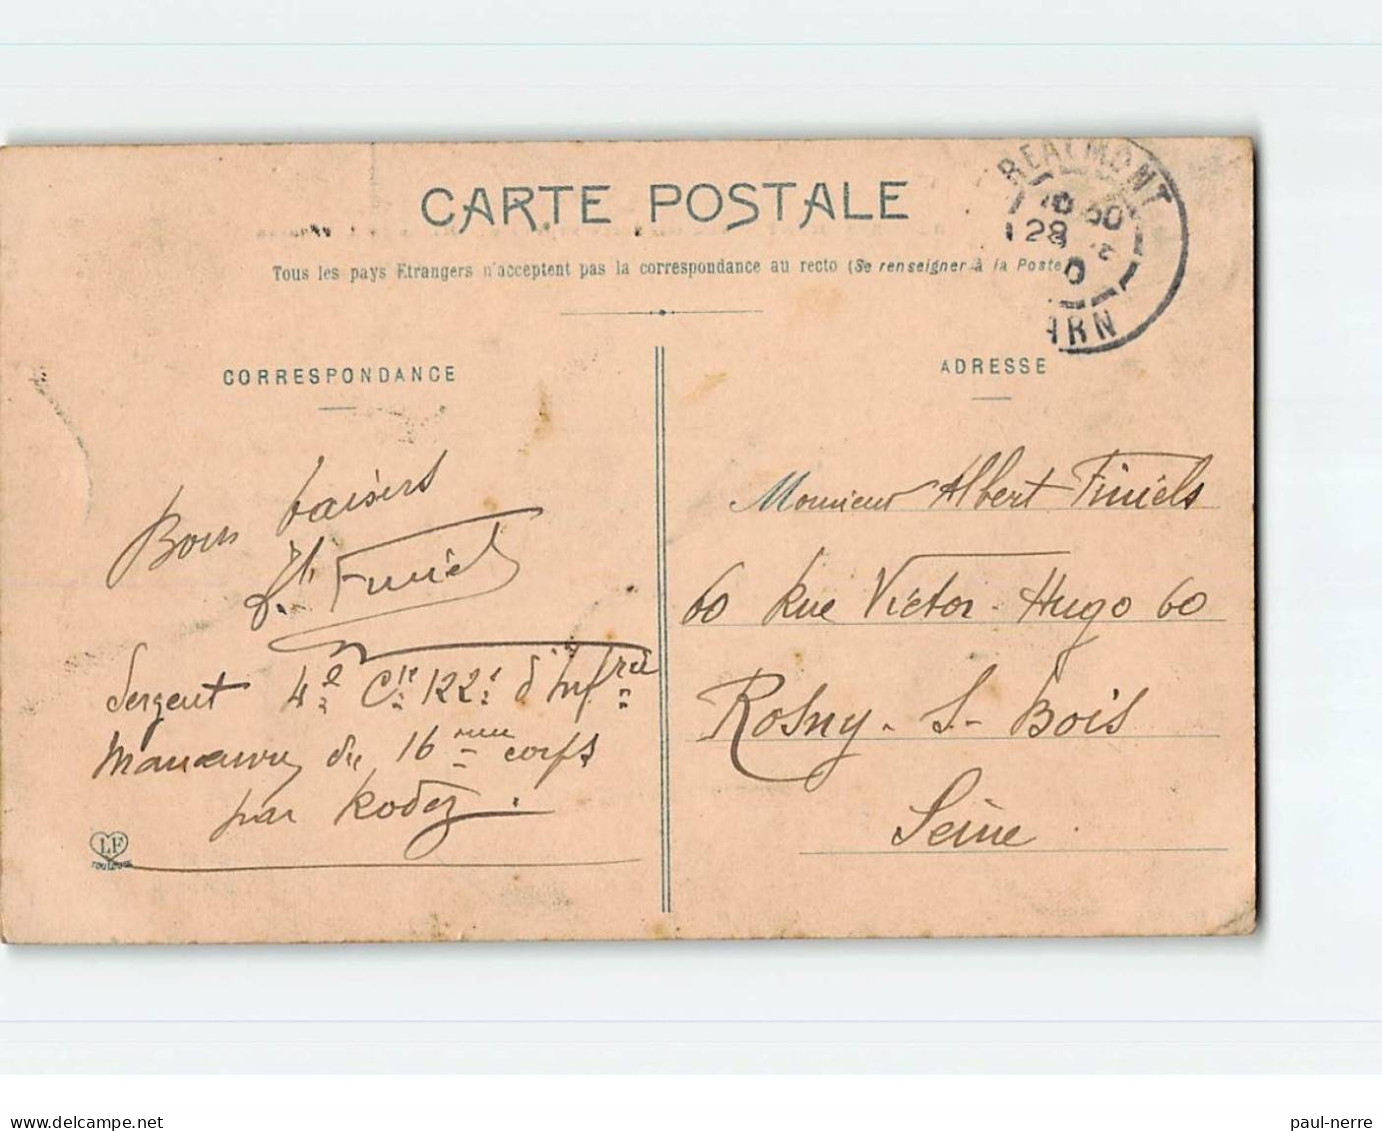 CARTE POSTALE
Tous les pays Etrangers n'acceptent pas la correspondance au recto (Se renseigner à la Poste
REALMONT
28
ARN
CORRESPONDANCE
Bons baisers
Finiels
Sergent 4e Cie 122e d'Infrie
Manœuvres du 16eme corps
par Rodez.
LF
TOULOUSE
ADRESSE
Monsieur Albert Finiels
60 Rue Victor-Hugo 60
Rosny-S-Bois
Seine
delcampe.net
paul-nerre